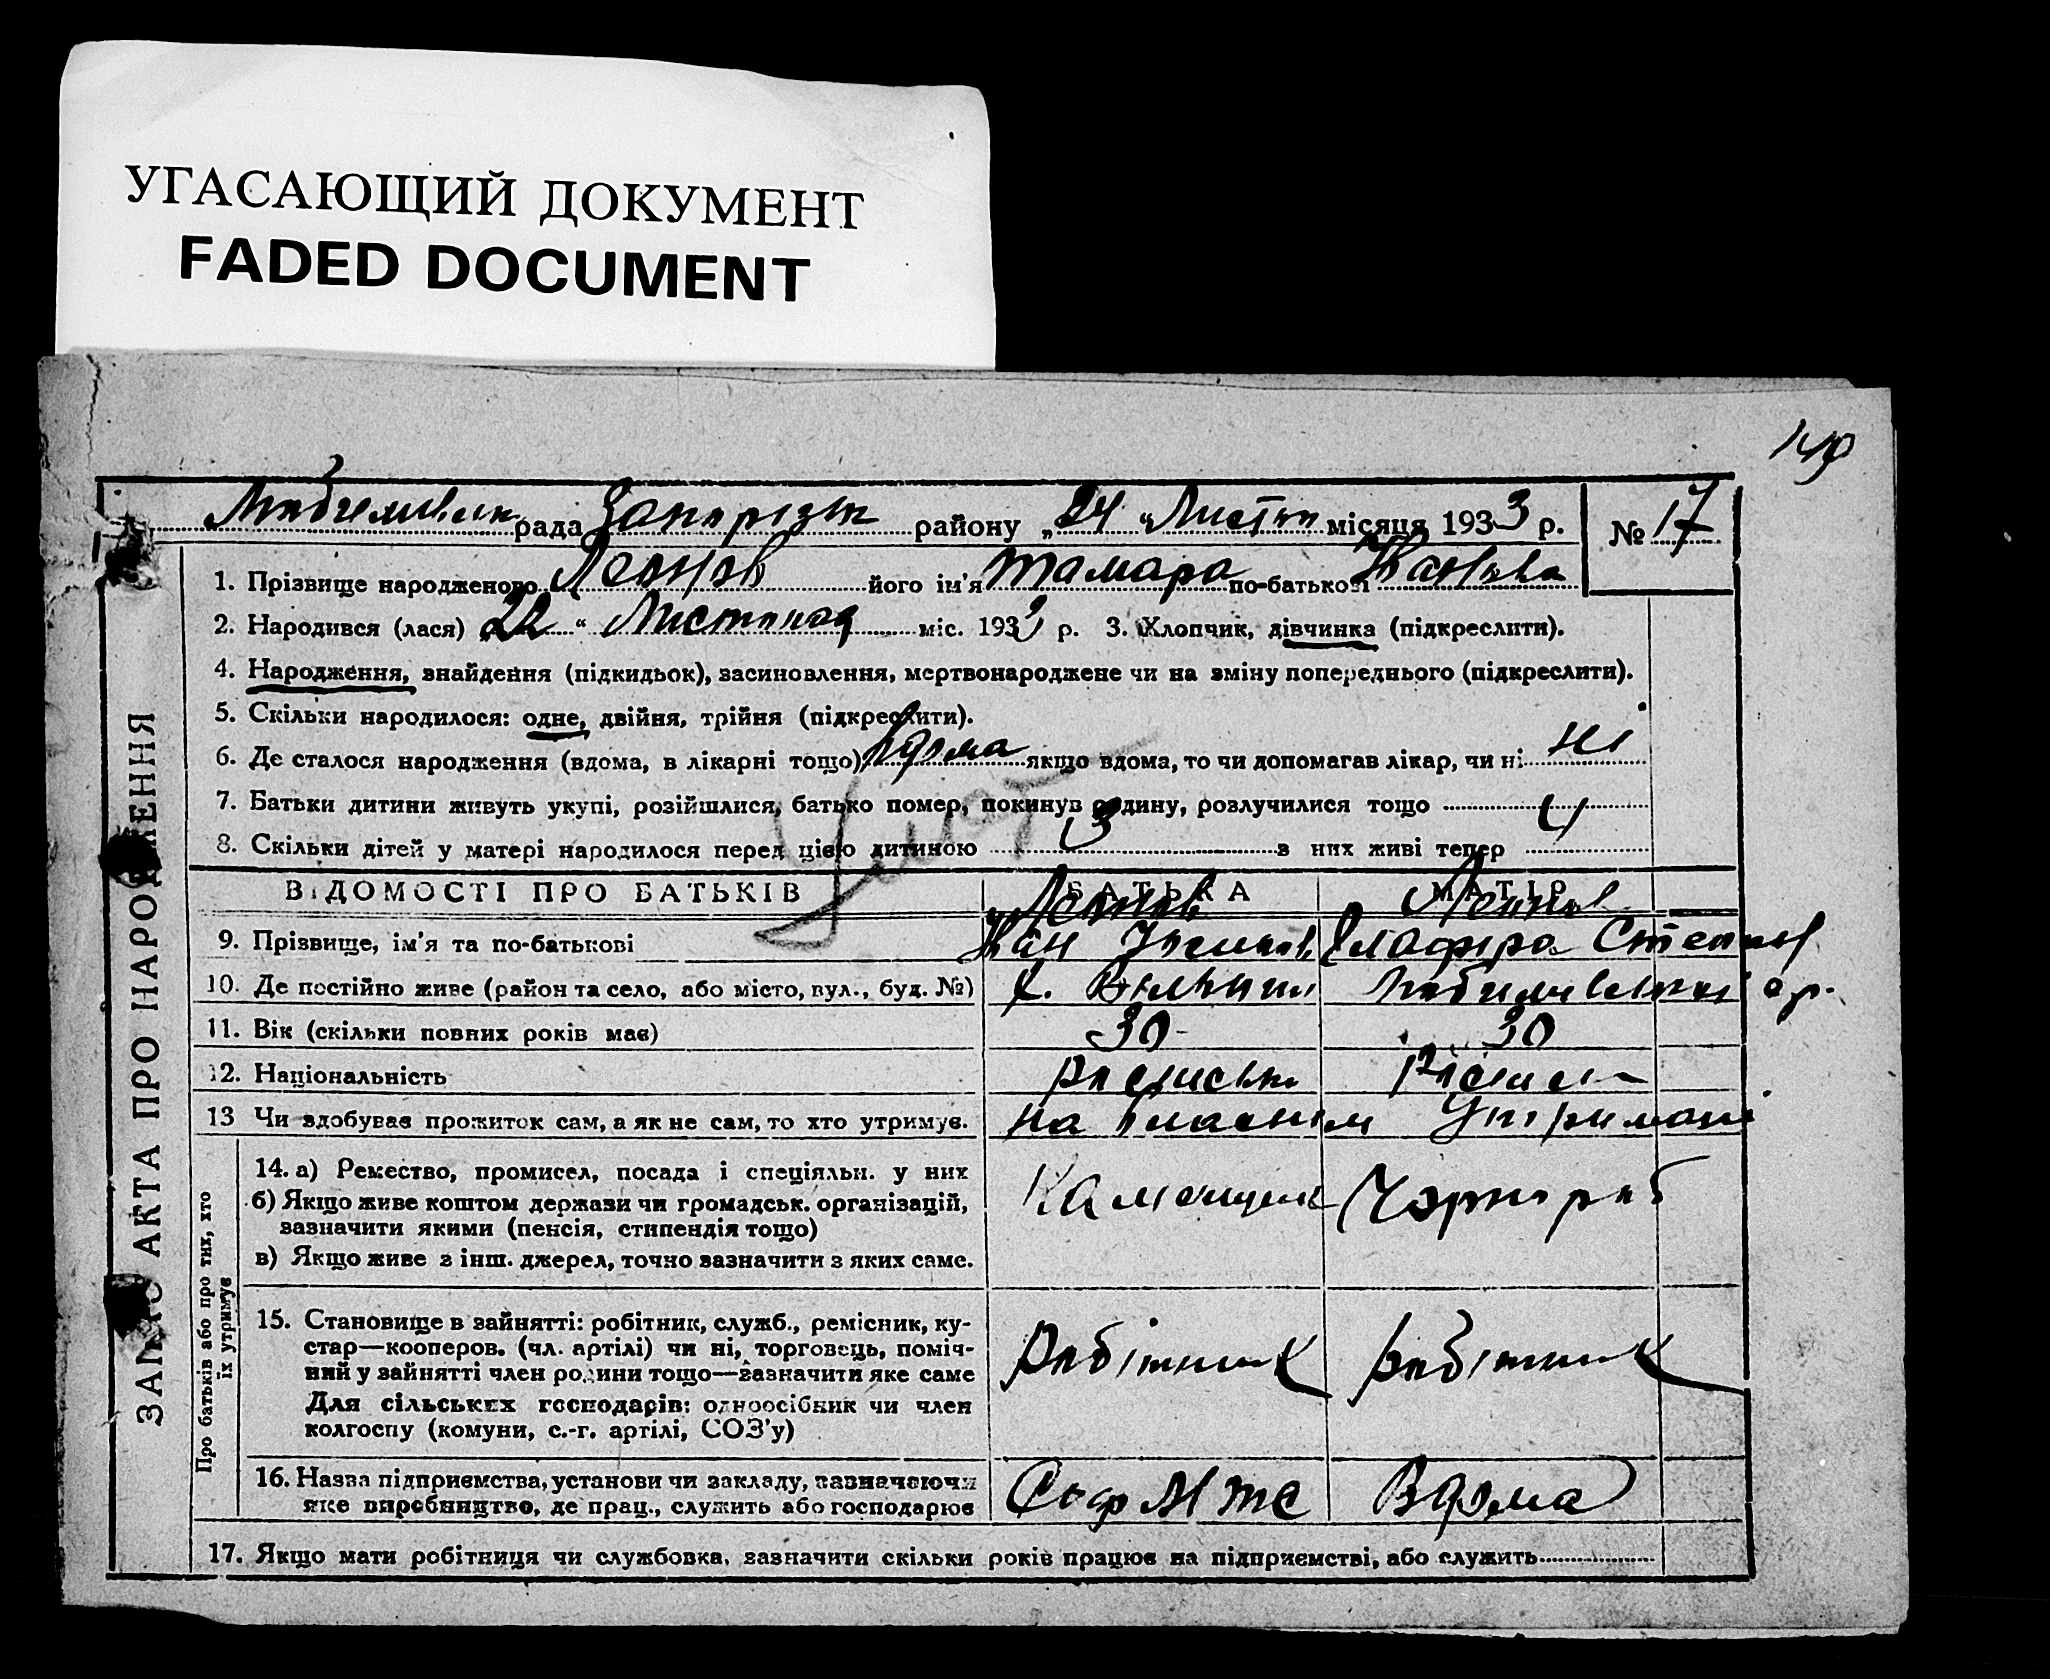 УГАСАЮЩИЙ ДОКУМЕНТ
FADED DOCUMENT
рада Запорізьк району „24 “ Листоп місяця 1933 р. № 17
1. Прізвище народженого його ім'я Тамара по-батькові
2. Народився (лася) 22 “ Листопад міс. 1933 р. 3. Хлопчик, дівчинка (підкреслити).
4. Народження, знайдення (підкидьок), засиновлення, мертвонароджене чи на зміну попереднього (підкреслити).
5. Скільки народилося: одне, двійня, трійня (підкреслити).
6. Де сталося народження (вдома, в лікарні тощо) вдома якщо вдома, то чи допомагав лікар, чи ні ні
7. Батьки дитини живуть укупі, розійшлися, батько помер, покинув родину, розлучилися тощо
8. Скільки дітей у матері народилося перед цією дитиною 3 з них живі тепер 4
ВІДОМОСТІ ПРО БАТЬКІВ БАТЬКА МАТІР
9. Прізвище, ім'я та по-батькові
10. Де постійно живе (район та село, або місто, вул., буд. №)
11. Вік (скільки повних років має) 30 30
12. Національність
13 Чи здобуває прожиток сам, а як не сам, то хто утримує. на власнім утримані
14. а) Ремество, промисел, посада і спеціяльн. у них Каменщик Чорнороб
б) Якщо живе коштом держави чи громадськ. організацій,
зазначити якими (пенсія, стипендія тощо)
в) Якщо живе з інш. джерел, точно зазначити з яких саме.
15. Становище в зайнятті: робітник, служб., ремісник, ку-
стар—кооперов. (чл. артілі) чи ні, торговець, поміч-
ний у зайнятті член родини тощо—зазначити яке саме робітник робітник
Для сільських господарів: одноосібник чи член
колгоспу (комуни, с.-г. артілі, СОЗ'у)
16. Назва підприємства, установи чи закладу, зазначаючи
яке виробництво, де прац., служить або господарює Соф МТС Вдома
17. Якщо мати робітниця чи службовка, зазначити скільки років працює на підприємстві, або служить
ЗАПИС АКТА ПРО НАРОДЖЕННЯ
Про батьків або про тих, хто
їх утримує